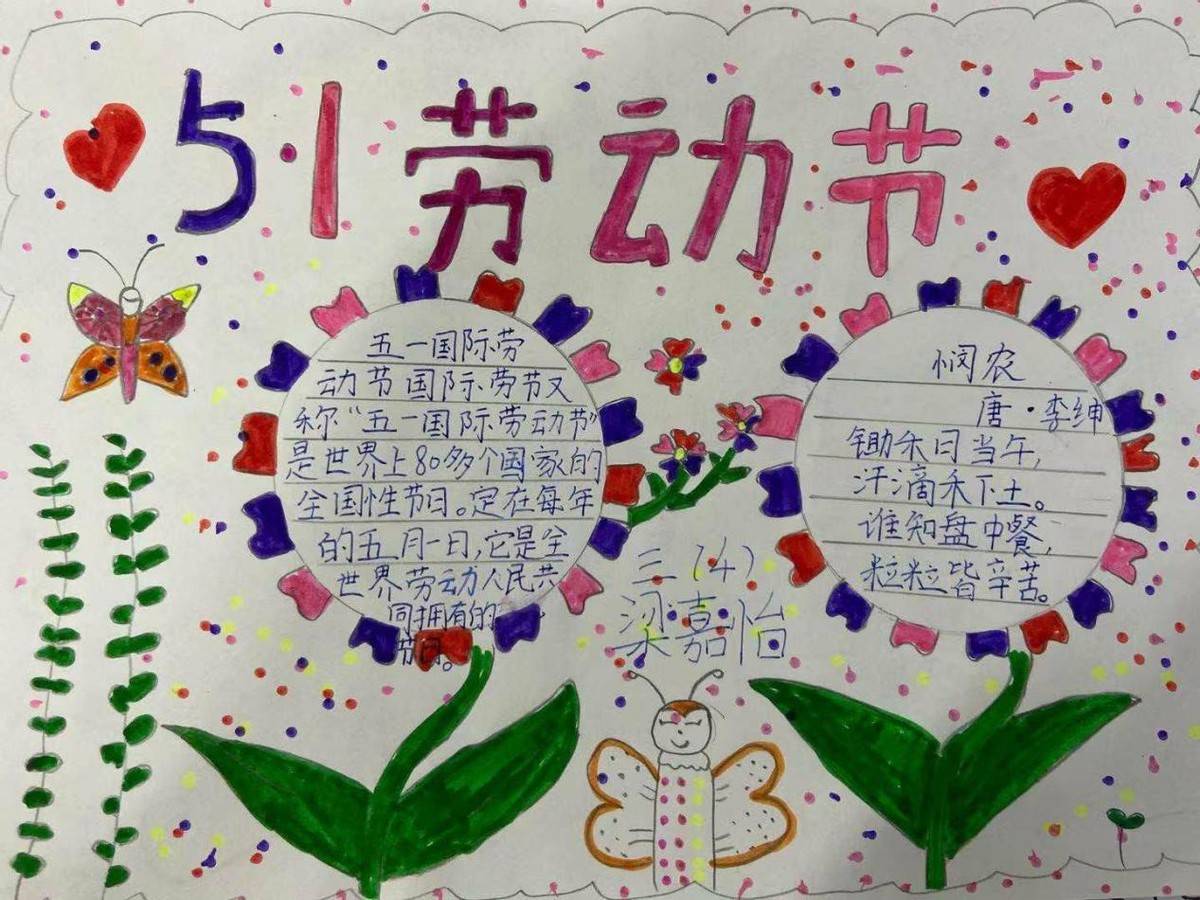 5·1劳动节
五一国际劳
动节国际劳节又
称“五一国际劳动节”
是世界上80多个国家的
全国性节日。定在每年
的五月一日,它是全
世界劳动人民共
同拥有的
节日。
悯农
唐·李绅
锄禾日当午,
汗滴禾下土。
谁知盘中餐,
粒粒皆辛苦。
三(4)
梁嘉怡